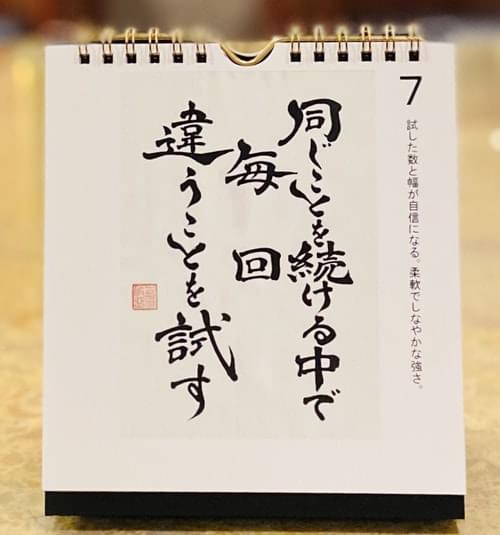 7
試した数と幅が自信になる。柔軟でしなやかな強さ。
同じことを続ける中で
毎回
違うことを試す